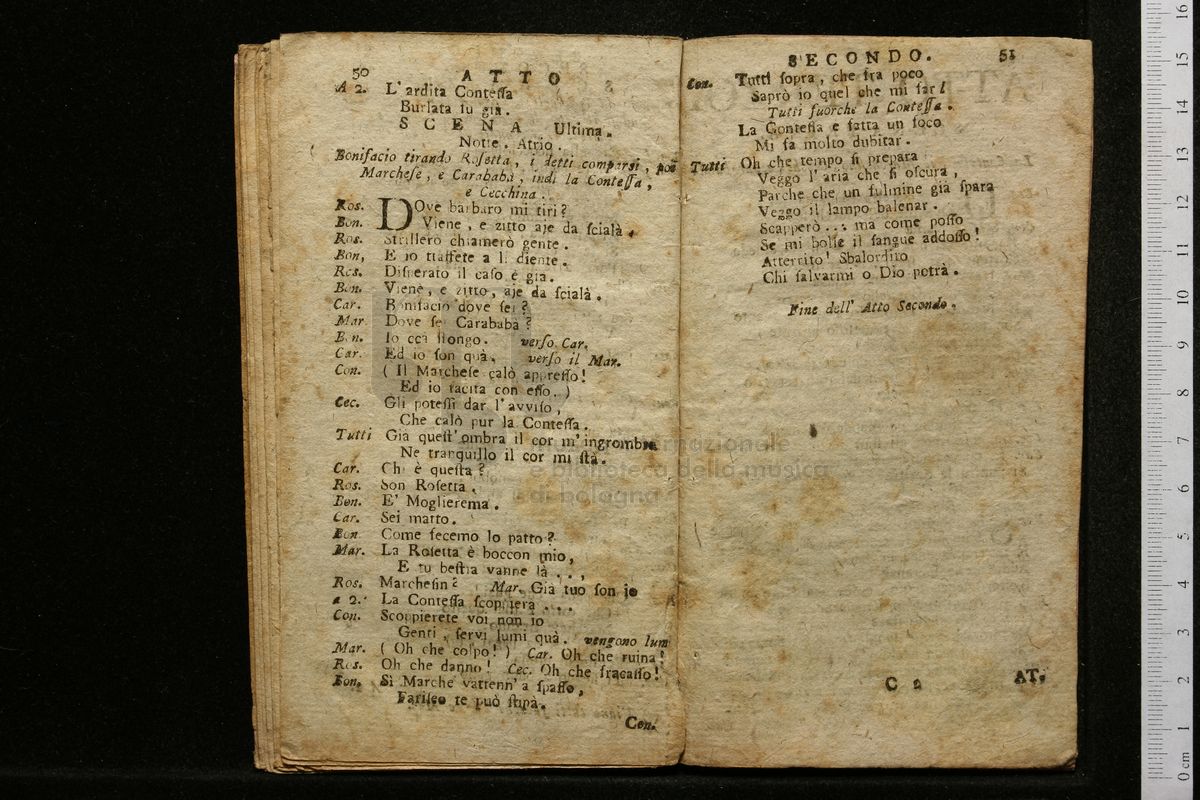 50 ATTO
A 2. L'ardita Contessa
Burlata fu già.
SCENA Ultima.
Notte. Atrio.
Bonifacio tirando Rosetta, i detti comparsi, poi
Marchese, e Carababà, indi la Contessa,
e Cecchina.
Ros. DOve barbaro mi tiri?
Bon. Viene, e zitto aje da scialà.
Ros. Strillerò chiamerò gente.
Bon. E io ttaffete a li diente.
Ros. Disperato il caso è già.
Bon. Viene, e zitto, aje da scialà.
Car. Bonifacio dove sei?
Mar. Dove sei Carababà?
Bon. Io cca stongo. verso Car.
Car. Ed io son quà. verso il Mar.
Con. ( Il Marchese calò appresso!
Ed io tacita con esso. )
Cec. Gli potessi dar l'avviso,
Che calò pur la Contessa.
Tutti Già quest'ombra il cor m'ingrombra
Ne tranquillo il cor mi stà.
Car. Chi è questa?
Ros. Son Rosetta.
Bon. E' Moglierema.
Car. Sei matto.
Bon. Come facemo lo patto?
Mar. La Rosetta è boccon mio,
E tu bestia vanne là...,
Ros. Marchesin? Mar. Già tuo son io
a 2. La Contessa scoppierà....
Con. Scoppierete voi non io
Genti, servi lumi quà. vengono lum
Mar. ( Oh che colpo! ) Car. Oh che ruina!
Ros. Oh che danno! Cec. Oh che fracasso!
Bon. Sì Marche vattenn'a spasso,
Fariseo te può stipà.
Con.
SECONDO. 51
Con. Tutti sopra, che fra poco
Saprò io quel che mi far
Tutti fuorchè la Contessa.
La Contessa è fatta un foco
Mi fa molto dubitar.
Tutti Oh che tempo si prepara
Veggo l'aria che si oscura,
Parche che un fulmine già spara
Veggo il lampo balenar.
Scapperò... ma come posso
Se mi bolle il sangue addosso!
Atterrito! Sbalordito
Chi salvarmi o Dio potrà.
Fine dell' Atto Secondo.
C 2
AT.
internazionale
e biblioteca della musica
di bologna
0 cm 1 2 3 4 5 6 7 8 9 10 11 12 13 14 15 16